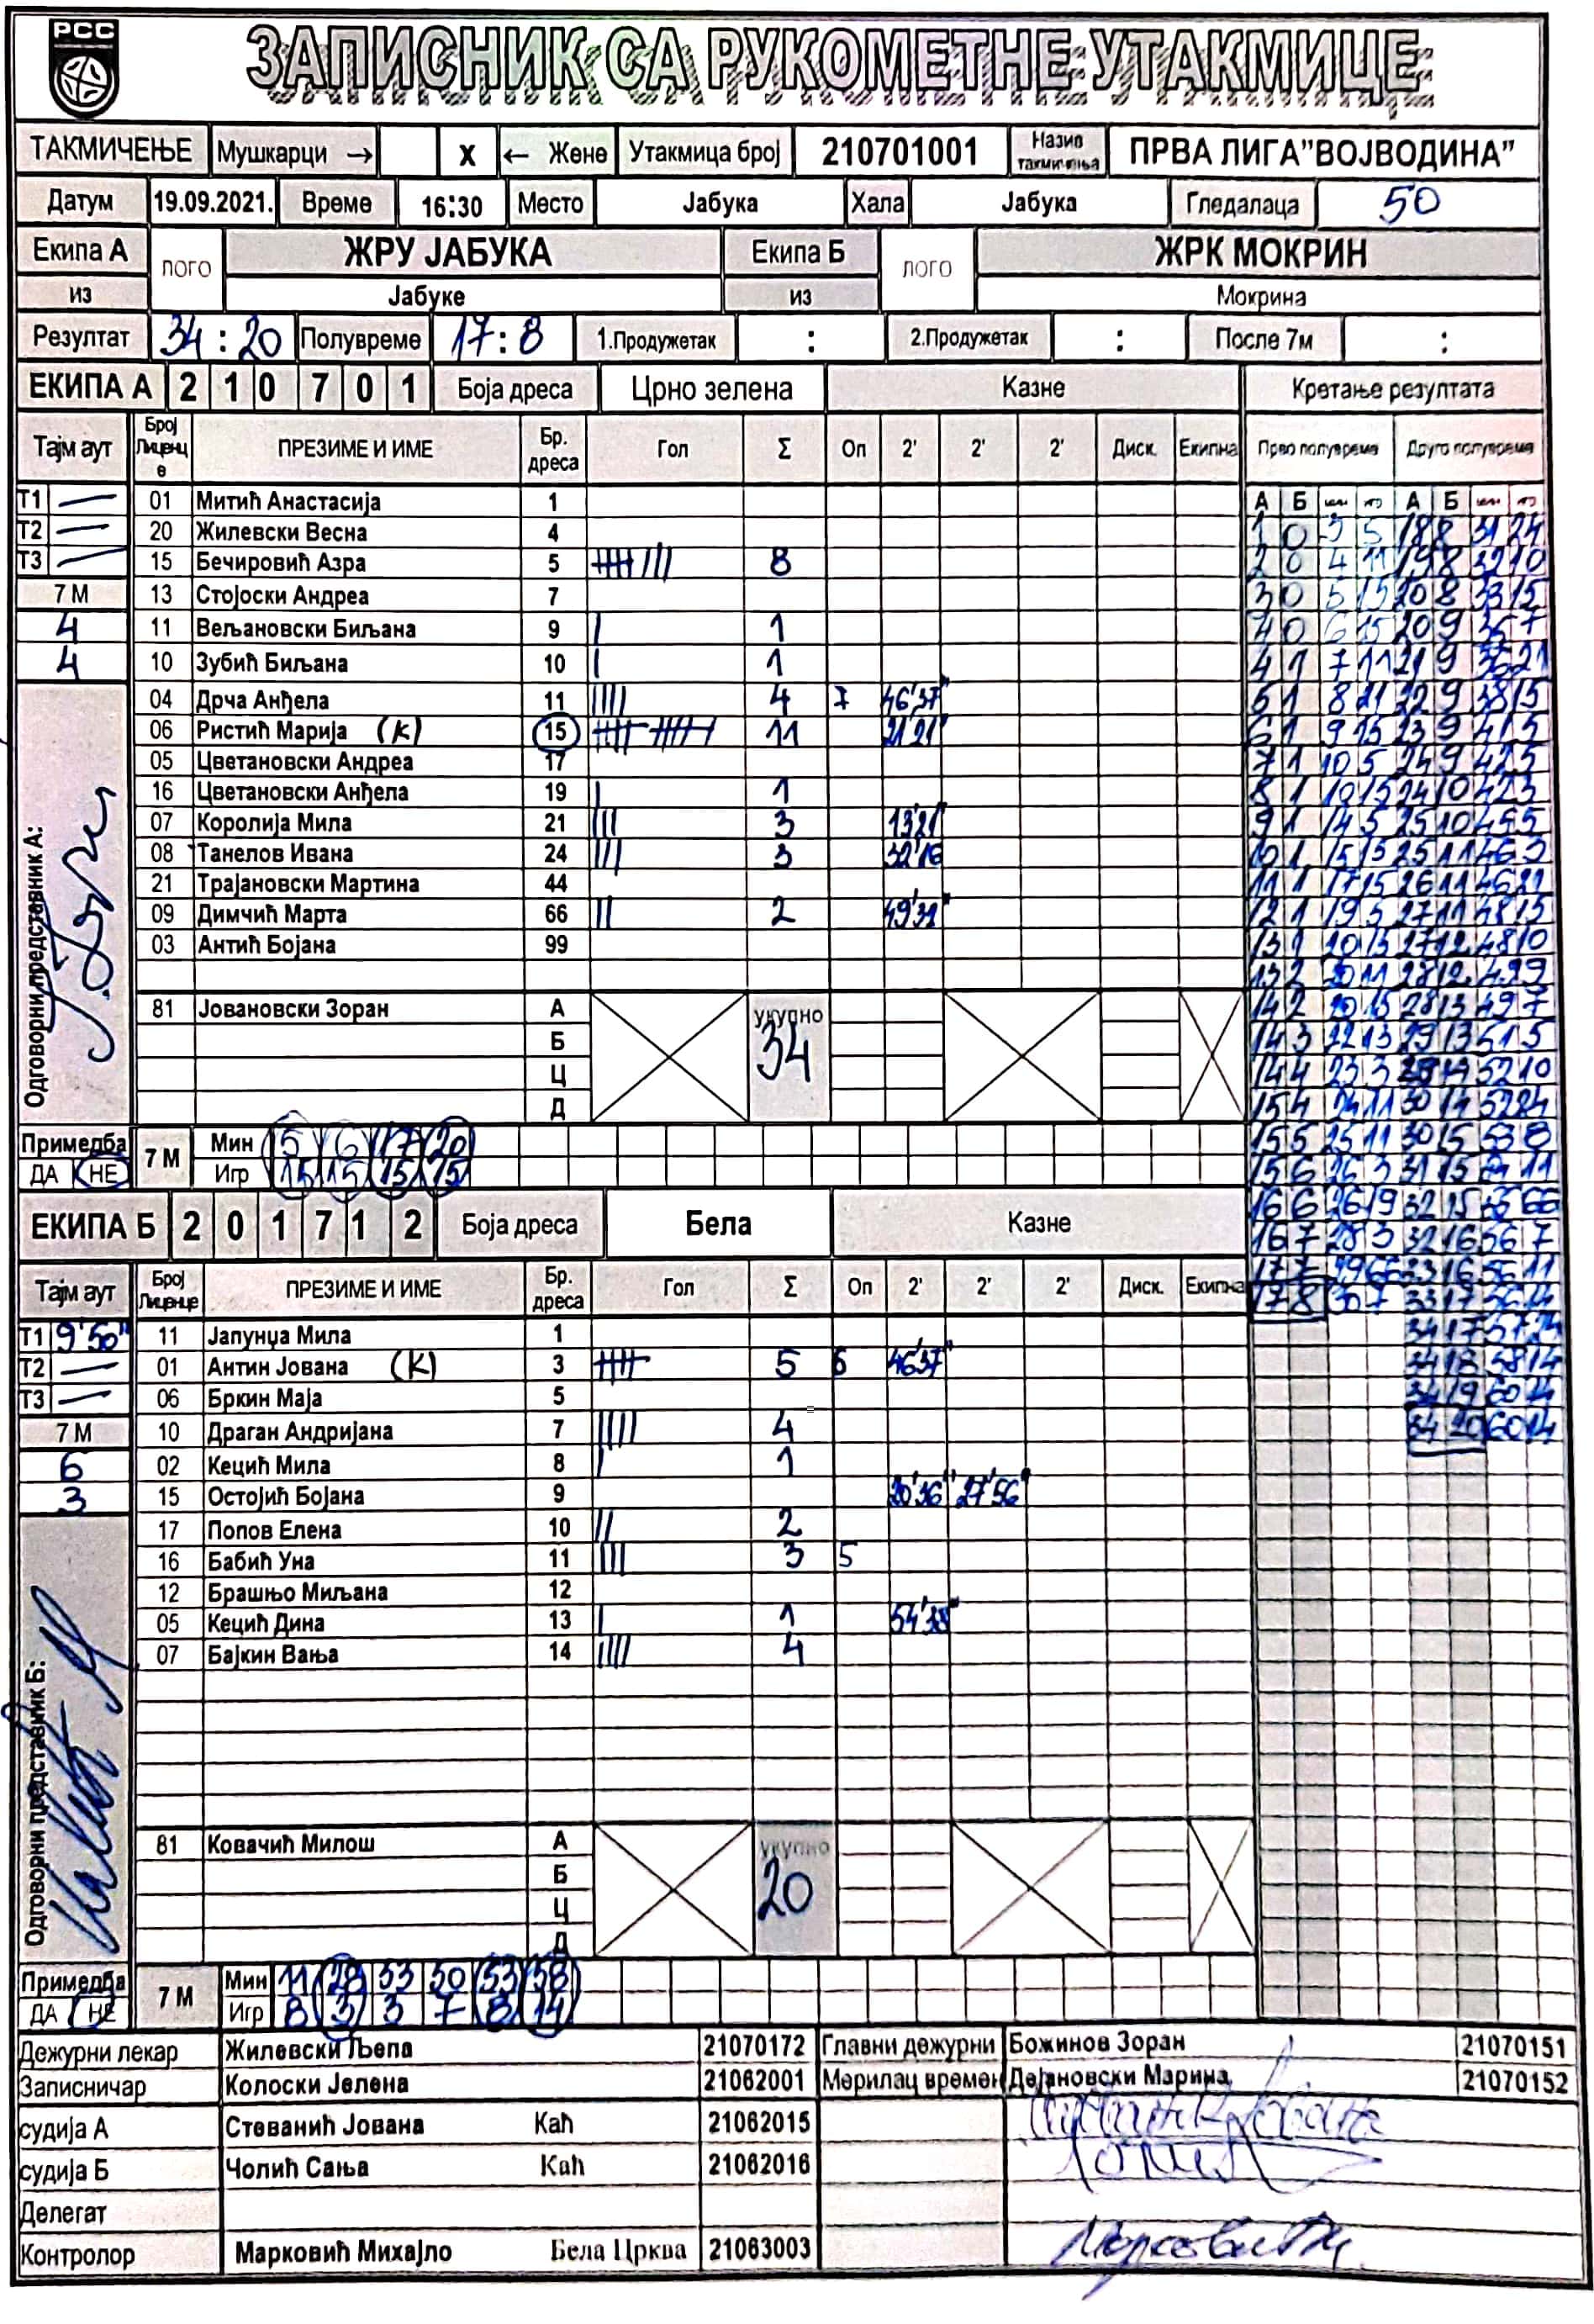 РСС
ЗАПИСНИК СА РУКОМЕТНЕ УТАКМИЦЕ
ТАКМИЧЕЊЕ Мушкарци → x ← Жене Утакмица број 210701001 Назив такмичења ПРВА ЛИГА"ВОЈВОДИНА"
Датум 19.09.2021. Време 16:30 Место Јабука Хала Јабука Гледалаца 50
Екипа А лого ЖРУ ЈАБУКА Екипа Б лого ЖРК МОКРИН
из Јабуке из Мокрина
Резултат 34 : 20 Полувреме 17 : 8 1.Продужетак : 2.Продужетак : После 7м :
ЕКИПА А 2 1 0 7 0 1 Боја дреса Црно зелена Казне Кретање резултата
Тајм аут Број Лиценце ПРЕЗИМЕ И ИМЕ Бр. дреса Гол Σ Оп 2' 2' 2' Диск. Екипна Прво полувреме Друго полувреме
Т1 — 01 Митић Анастасија 1 А Б А Б
Т2 — 20 Жилевски Весна 4 1 0 3 5 18 8 31 24
Т3 — 15 Бечировић Азра 5 8 2 0 4 11 19 8 32 10
7 М 13 Стојоски Андреа 7 3 0 5 15 20 8 33 15
4 11 Вељановски Биљана 9 1 4 0 6 15 20 9 35 7
4 10 Зубић Биљана 10 1 4 1 7 11 21 9 36 21
04 Дрча Анђела 11 4 7 46'37" 5 1 8 21 22 9 38 15
06 Ристић Марија (К) 15 11 21'21" 6 1 9 15 23 9 41 5
05 Цветановски Андреа 17 7 1 10 5 24 9 42 5
16 Цветановски Анђела 19 1 8 1 10 15 24 10 42 3
07 Королија Мила 21 3 13'21" 9 1 14 5 25 10 45 5
08 Танелов Ивана 24 3 32'16 10 1 15 15 25 11 46 3
21 Трајановски Мартина 44 11 1 17 15 26 11 46 21
09 Димчић Марта 66 2 49'31" 12 1 19 5 27 11 48 15
03 Антић Бојана 99 13 1 20 15 27 12 48 10
13 2 20 11 28 12 49 9
81 Јовановски Зоран А укупно 34 14 2 20 15 28 13 49 7
Б 14 3 22 13 29 13 51 5
Ц 14 4 23 3 29 14 52 10
Д 15 4 24 11 30 14 52 24
Одговорни представник А:
Примедба ДА НЕ 7 М Мин 5 6 17 20 15 5 25 11 30 15 53 8
Игр 15 15 15 15 15 6 26 3 31 15 54 11
ЕКИПА Б 2 0 1 7 1 2 Боја дреса Бела Казне 16 6 26 19 32 15 55 66
16 7 28 3 32 16 56 7
Тајм аут Број Лиценце ПРЕЗИМЕ И ИМЕ Бр. дреса Гол Σ Оп 2' 2' 2' Диск. Екипна 17 7 29 66 33 16 56 11
17 8 30 7 33 17 56 14
Т1 9'50" 11 Јапунџа Мила 1 34 17 57 24
Т2 — 01 Антин Јована (К) 3 5 6 46'37" 34 18 58 14
Т3 — 06 Бркин Маја 5 34 19 60 14
7 М 10 Драган Андријана 7 4 34 20 60 14
6 02 Кецић Мила 8 1
3 15 Остојић Бојана 9 20'36" 27'56"
17 Попов Елена 10 2
16 Бабић Уна 11 3 5
12 Брашњо Миљана 12
05 Кецић Дина 13 1 54'38"
07 Бајкин Вања 14 4
Одговорни представник Б:
81 Ковачић Милош А укупно 20
Б
Ц
Д
Примедба ДА НЕ 7 М Мин 11 28 33 50 53 58
Игр 8 3 3 7 8 14
Дежурни лекар Жилевски Љепа 21070172 Главни дежурни Божинов Зоран 21070151
Записничар Колоски Јелена 21062001 Мерилац времен Дејановски Марина 21070152
судија А Стеванић Јована Каћ 21062015
судија Б Чолић Сања Каћ 21062016
Делегат
Контролор Марковић Михајло Бела Црква 21063003